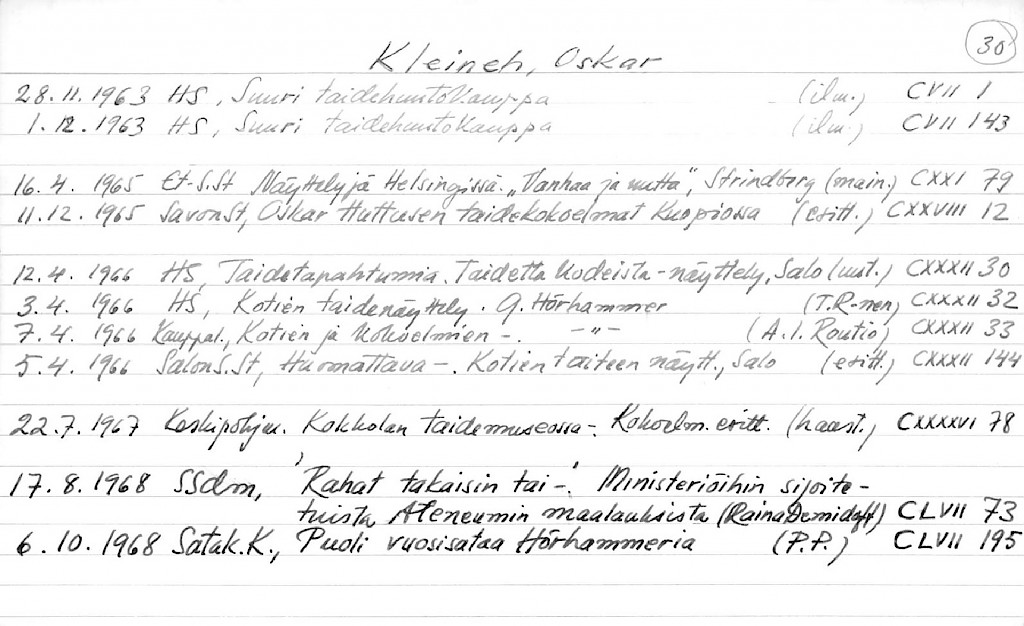 30
Kleineh, Oskar
28.11.1963 HS, Suuri taidehuutokauppa (ilm.) CVII 1
1.12.1963 HS, Suuri taidehuutokauppa (ilm.) CVII 143
16.4. 1965 Et-S.St Näyttelyjä Helsingissä. "Vanhaa ja uutta", Strindberg (main.) CXXI 79
11.12. 1965 SavonSt, Oskar Huttusen taidekokoelmat Kuopiossa (esitt.) CXXVIII 12
12.4. 1966 HS, Taidetapahtumia. Taidetta kodeista-näyttely, Salo (uut.) CXXXII 30
3.4. 1966 HS, Kotien taidenäyttely. G. Hörhammer (T.R-nen) CXXXII 32
7.4. 1966 Kauppal., Kotien ja kokoelmien -. -"- (A.I. Routio) CXXXII 33
5.4. 1966 SalonS.St, Huomattava -. Kotien taiteen näytt., Salo (esitt.) CXXXII 144
22.7. 1967 Keskipohjan. Kokkolan taidemuseossa -. Kokoelm. esitt. (haast.) CXXXXVI 78
17.8. 1968 SSdm, 'Rahat takaisin tai -'. Ministeriöihin sijoite-
tuista Ateneumin maalauksista (Raina Demidoff) CLVII 73
6.10. 1968 Satak.K., Puoli vuosisataa Hörhammeria (P.P.) CLVII 195